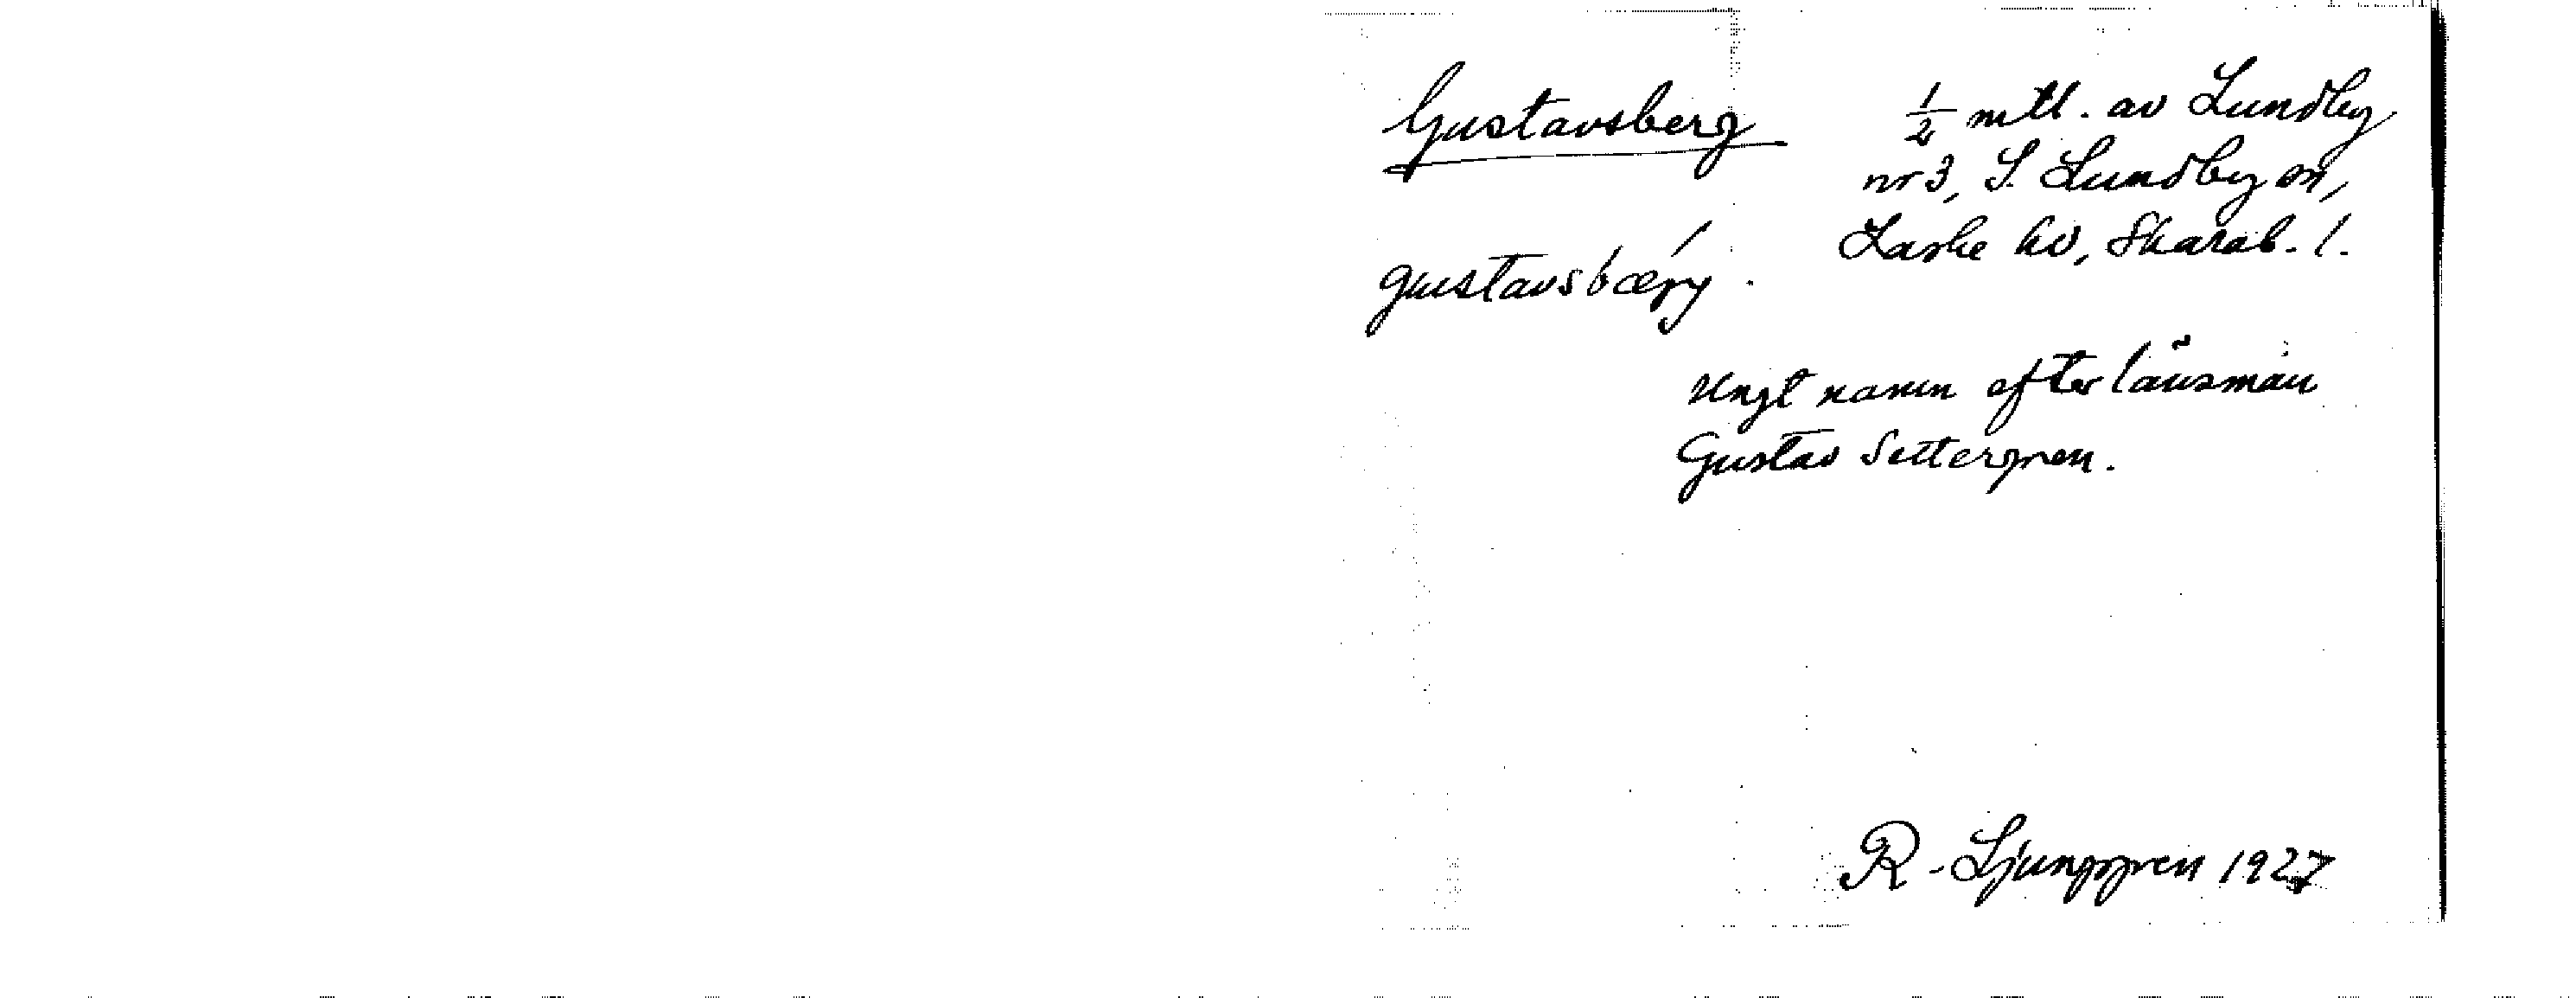 Gustavsberg
½ mtl. av Lundby
nr 3, S. Lundby sn,
Laske hd, Skarab. l.
gustavsbærj.
Ungt namn efter länsman
Gustav Settergren.
R. Ljunggren 1927